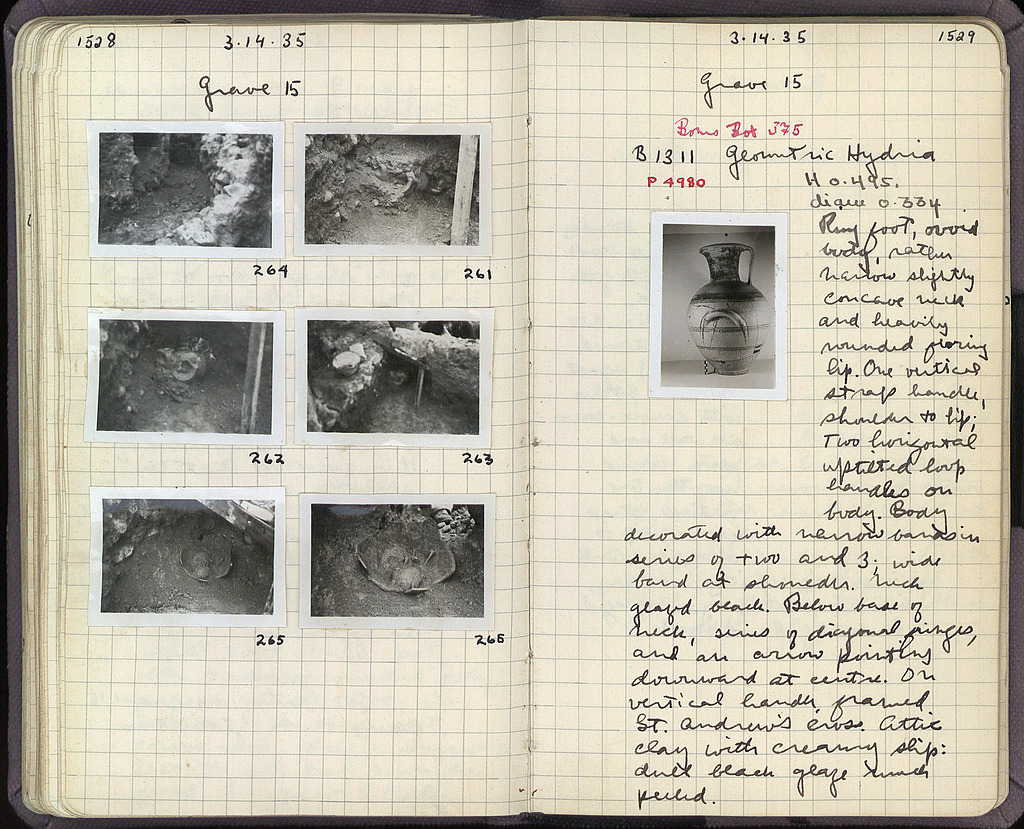 1528
3·14·35
Grave 15
264
261
262
263
265
265
3·14·35
1529
Grave 15
Bones Box 375
B 1311 Geometric Hydria
P 4980
H 0.495.
diam 0.334
Ring foot, ovoid
body, rather
narrow slightly
concave neck
and heavily
rounded flaring
lip. One vertical
strap handle,
shoulder to lip;
Two horizontal
uptilted loop
handles on
body. Body
decorated with narrow bands in
series of two and 3; wide
band at shoulder. Neck
glazed black. Below base of
neck, series of diagonal fringes,
and an arrow pointing
downward at centre. On
vertical handle framed
St. Andrew's cross. Attic
clay with creamy slip:
dull black glaze much
peeled.